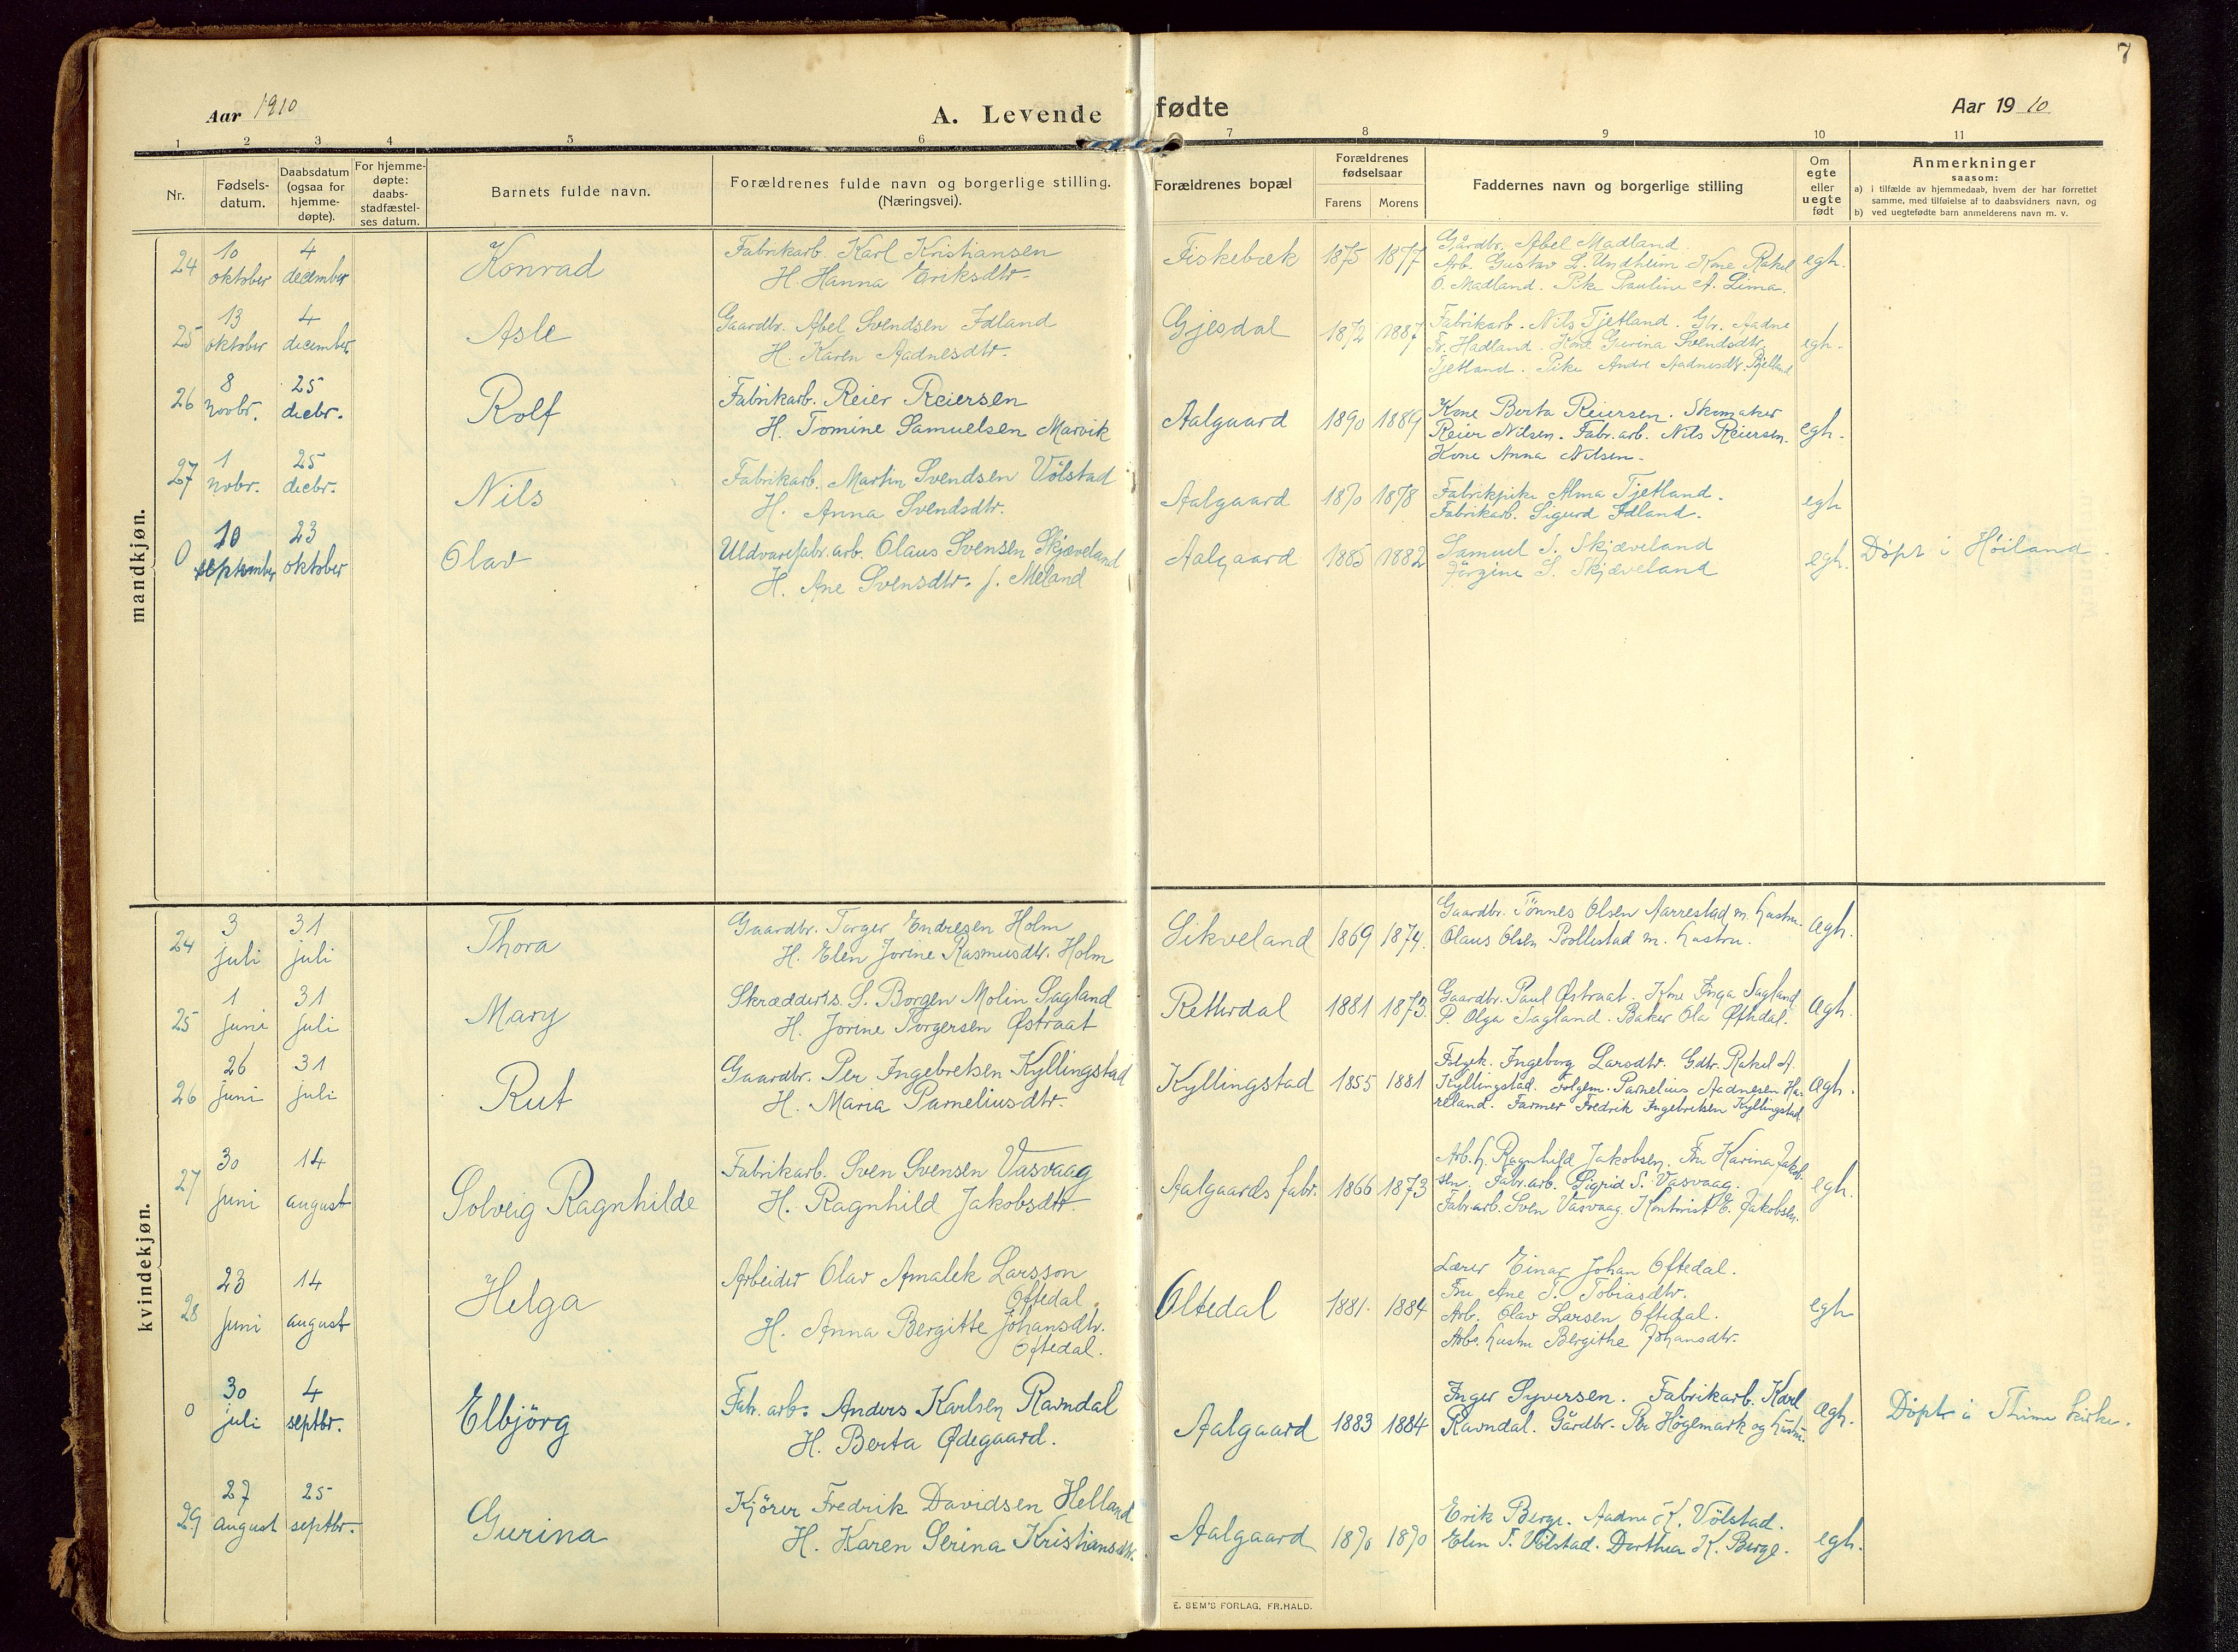 7
Aar 1910
A. Levende fødte
Aar 1910
1 2 3 4 5 6 7 8 9 10 11
Nr.
Fødsels-
datum.
Daabsdatum
(ogsaa for
hjemme-
døpte).
For hjemme-
døpte:
daabs-
stadfæstel-
ses datum.
Barnets fulde navn.
Forældrenes fulde navn og borgerlige stilling.
(Næringsvei).
Forældrenes bopæl
Forældrenes
fødselsaar
Farens Morens
Faddernes navn og borgerlige stilling
Om
egte
eller
uegte
født
Anmerkninger
saasom:
a) i tilfælde av hjemmedaab, hvem der har forrettet
samme, med tilføielse af to daabsvidners navn, og
b) ved uegtefødte barn anmelderens navn m. v.
mandkjøn.
24
10
oktober
4
december
Konrad
Fabrikarb. Karl Kristiansen
H. Hanna Eriksdtr.
Fiskebæk
1875 1877
Gårdbr. Abel Madland.
Arb. Gustav L. Undheim Kone Rakel
O. Madland. Pike Pauline A. Lima.
egh.
25
13
oktober
4
december
Asle
Gaardbr. Abel Svendsen Idland
H. Karen Aadnesdtr.
Gjesdal
1872 1887
Fabrikarb. Nils Tjetland. Gbr. Aadne
Fr. Hadland. Kone Gurina Svendsdtr.
Tjetland. Pike Andre Aadnesdtr.
egh.
26
8
novbr.
25
decbr.
Rolf
Fabrikarb. Reier Reiersen
H. Tomine Samuelsen Marvik
Aalgaard
1890 1889
Kone Berta Reiersen. Skomaker
Reier Nilsen. Fabr.arb. Nils Reiersen.
Kone Anna Nilsen.
egh.
27
1
nobr.
25
decbr.
Nils
Fabrikarb. Martin Svendsen Völstad
H. Anna Svendsdtr.
Aalgaard
1870 1878
Fabrikpike Alma Tjetland.
Fabrikarb. Sigurd Idland.
egh
0
10
september
23
oktober
Olav
Uldvarefabr.arb. Olaus Svensen Skjæveland
H. Ane Svensdtr. f. Meland
Aalgaard
1885 1882
Samuel S. Skjæveland
Jörgine S. Skjæveland
egh.
Døpt i Høiland.
kvindekjøn.
24
3
juli
31
juli
Thora
Gaardbr. Torger Endresen Holm
H. Elen Jorine Rasmusdtr. Holm
Sikveland
1869 1874.
Gaardbr. Tönnes Olsen Aarrestad m. hustru.
Olaus Olsen Bollestad m. hustru.
ægh.
25
1
juni
31
juli
Mary
Skrædders. S. Borgen Molin Sagland
H. Jorine Torgersen Østraat
Retterdal
1881 1873.
Gaardbr. Paul Østraat. Kone Inga Sagland
P. Olga Sagland. Baker Ola Oftedal.
ægh.
26
26
juni
31
juli
Rut
Gaardbr. Per Ingebretsen Kyllingstad
H. Maria Parneliusdtr.
Kyllingstad
1855 1881
Folgek. Ingeborg Larsdtr. Gdtr. Rakel A.
Kyllingstad. Folgem. Parnelius Aadnesen Ha-
reland. Farmer Fredrik Ingebretsen Kyllingstad
ægh.
27
30
juni
14
august
Solveig Ragnhilde
Fabrikarb. Sven Svensen Vasvaag
H. Ragnhild Jakobsdtr.
Aalgaards fabr.
1866 1873
Arb. h. Ragnhild Jakobsen. Fru Karina Jakob-
sen. Fabr.arb. Sigrid S. Vasvaag.
Fabr.arb. Sven Vasvaag. Kontorist E. Jakobsen.
egh.
28
23
juni
14
august
Helga
Arbeider Olav Amalek Larsson
Oftedal.
H. Anna Bergitte Johansdtr.
Oftedal.
Oltedal
1881. 1884
Lærer Einar Johan Oftedal.
Fru Ane T. Tobiasdtr.
Arb. Olav Larsen Oftedal.
Arbs. hustru Bergithe Johansdtr.
egh
0
30
juli
4
septbr.
Elbjörg
Fabr. arb. Anders Karlsen Ravndal
H. Berta Ødegaard.
Aalgaard
1883 1884
Inger Syversen. Fabrikarb. Karl
Ravndal. Gårdbr. Per Högemark og hustru.
ægh.
Døpt i Thime kirke.
29
27
august
25
septbr.
Gurina
Kjörer Fredrik Davidsen Helland
H. Karen Serina Kristiansdtr.
Aalgaard
1870 1870
Erik Berge. Aadne K. Völstad.
Elen T. Völstad. Dorthea K. Berge.
egh.
E. SEM'S FORLAG, FR.HALD.